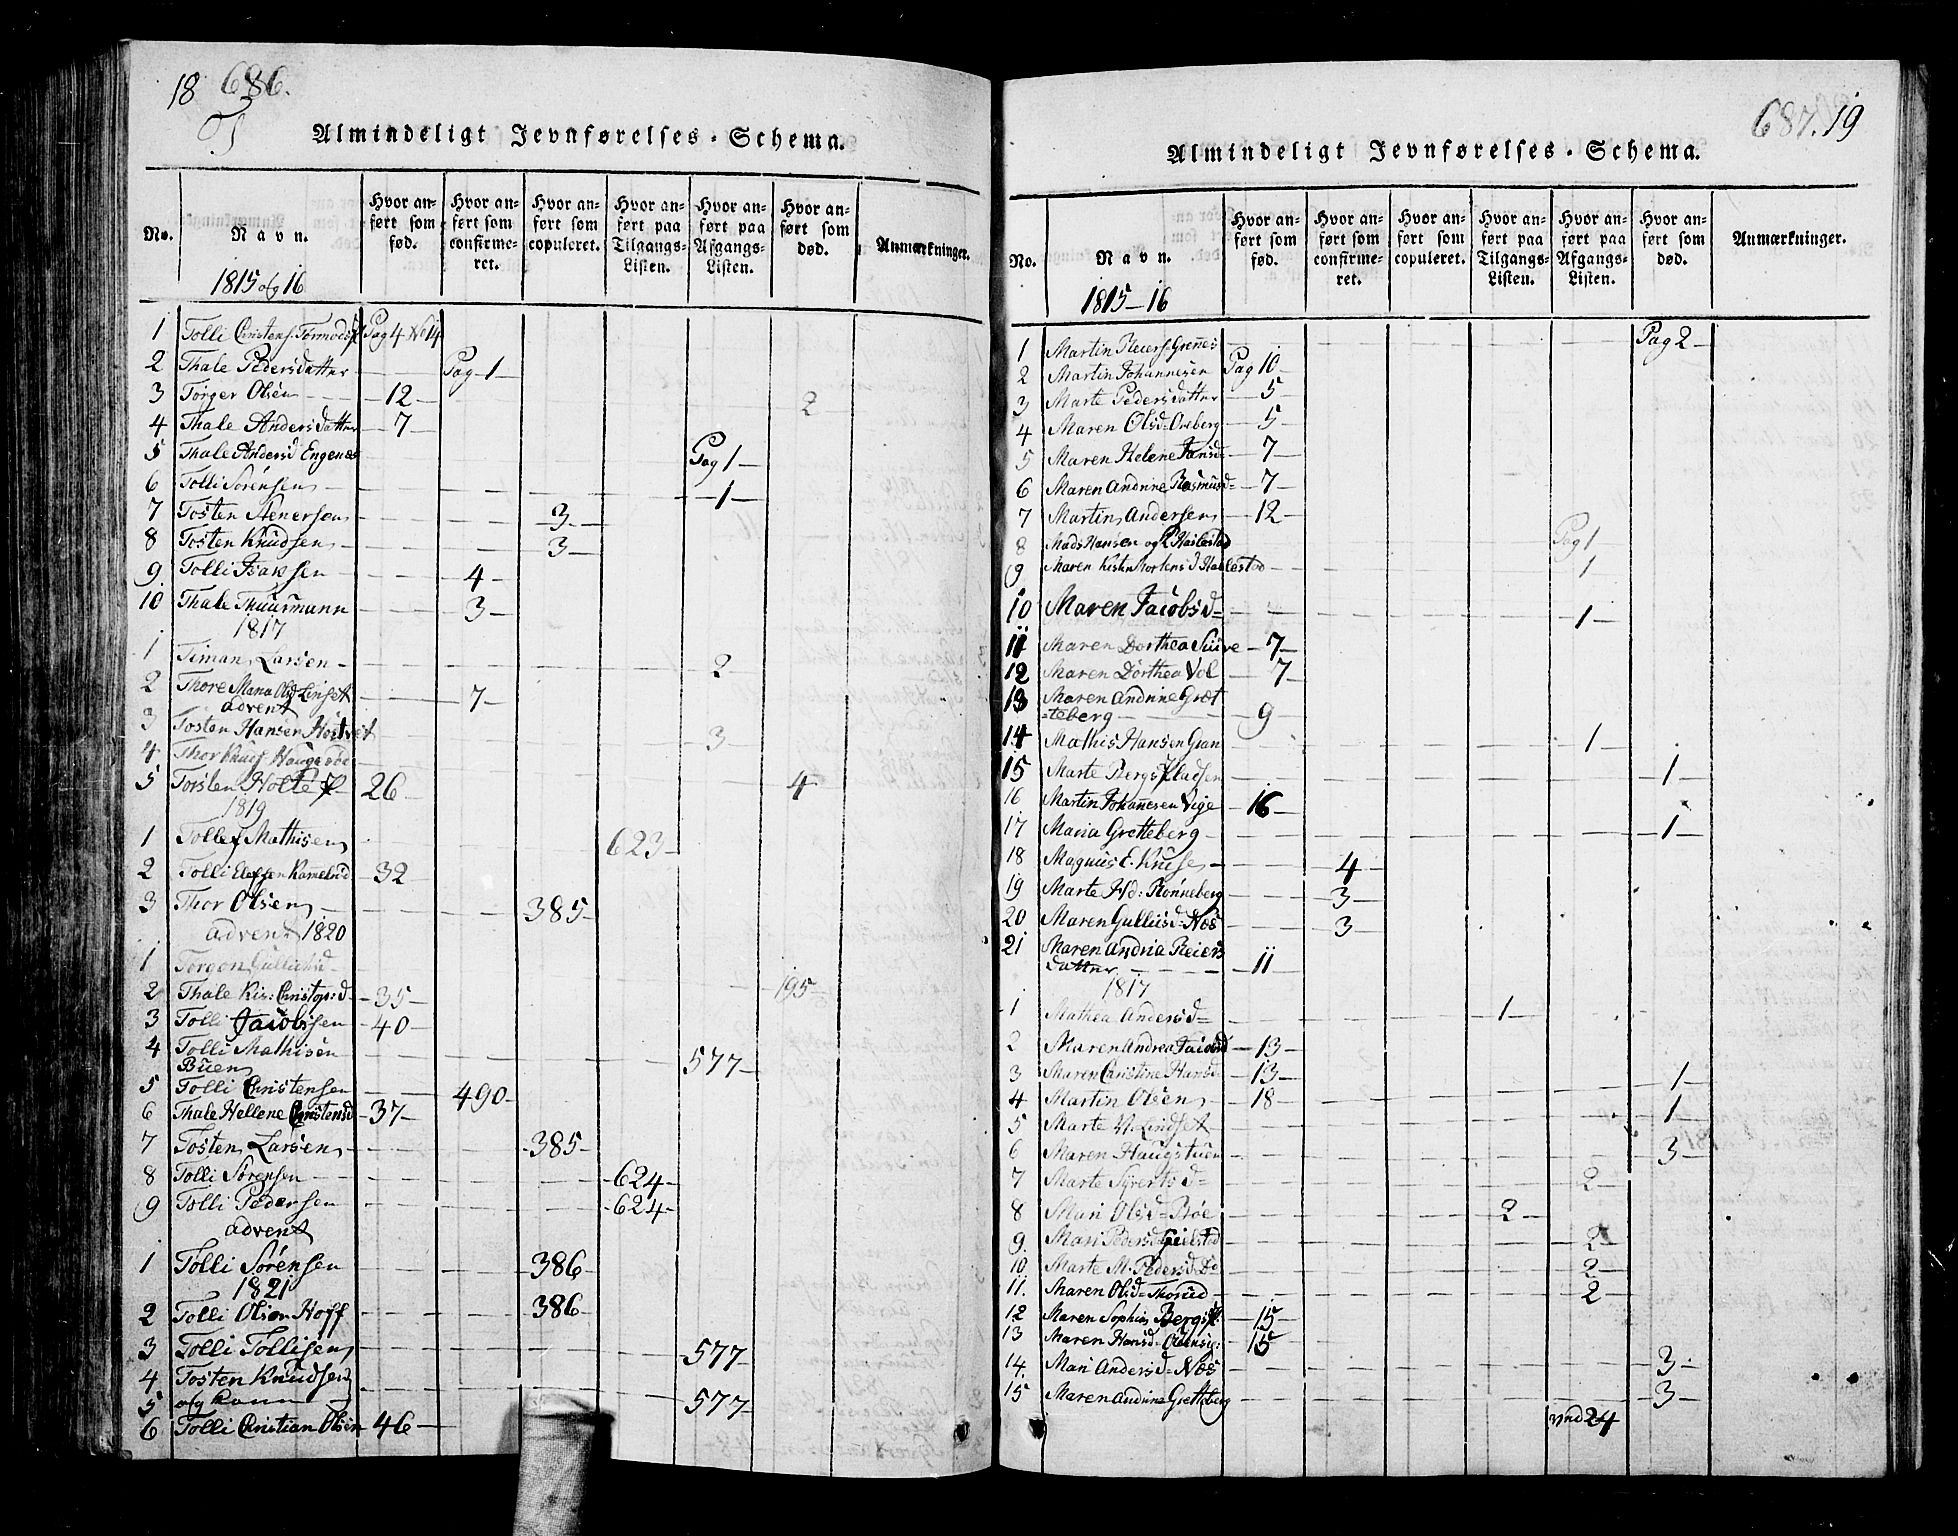 18 686.
T
Almindeligt Jevnførelses-Schema.
No. Navn. Hvor anført som fød. Hvor anført som confirmeret. Hvor anført som copuleret. Hvor anført paa Tilgangs-Listen. Hvor anført paa Afgangs-Listen. Hvor anført som død. Anmærkninger.
1815 og 16
1 Tolli Christens. Pag 4 No 14
2 Thale Pedersdatter Pag 1
3 Torger Olsen 12 2
4 Thale Andersdatter 7
5 Thale Andersd Engenes Pag 1
6 Tolli Sørensen 1
7 Tosten Stenersen 3
8 Tosten Knudsen 3
9 Tolli Isaksen 4
10 Thale Thuurmann 3
1817
1 Timan Larsen 2
2 Thore Maria Olsd Linset 7
advent
3 Tosten Hansen 3
4 Thor
5 Torsten Holte 26 4
1819
1 Tollef Mathisen 623
2 Tolli Elefsen 32
3 Thor Olsen 385
advent 1820
1 Torgon 195
2 Thale Kis: Christop:d 35
3 Tolli Jacobsen 40
4 Tolli Mathisen
Buen 577
5 Tolli Christensen 490
6 Thale Hellene Christensd 37
7 Tosten Larsen 385
8 Tolli Sørensen 624
9 Tolli Pedersen 624
advent
1 Tolli Sørensen 386
1821
2 Tolli Olsen Hoff 386
3 Tolli Tollisen 577
4 Tosten Knudsen
5 og Kone 577
6 Tolli Christian Olsen 46
687. 19
Almindeligt Jevnførelses-Schema.
No. Navn. Hvor anført som fød. Hvor anført som confirmeret. Hvor anført som copuleret. Hvor anført paa Tilgangs-Listen. Hvor anført paa Afgangs-Listen. Hvor anført som død. Anmærkninger.
1815-16
1 Martin Reiers. Grønes Pag 2
2 Martin Johannesen Pag 10
3 Marte Pedersdatter 5
4 Maren Olsd= Oreberg 5
5 Maren Helene Jansd= 7
6 Maren Andrine Rasmusd= 7
7 Martin Andersen 12
8 Mads Hansen og Haslestad Pag 1
9 Maren Mortensd Haslestad 1
10 Maren Jacobsd= 1
11 Maren Dorthea 7
12 Maren Dorthea 7
13 Maren Andrine Græt
=teberg 9
14 Mathis Hansen Gran 1
15 Marte Bergs 1
16 Martin Johannesen Vige 16
17 Maria Gretteberg 1
18 Magnus E. Kruse 4
19 Marte Hd: Rønneberg 3
20 Maren Gulliksd= Næs 3
21 Maren Andria Reiers
datter 11
1817
1 Mathea Andersd= 1
2 Maren Andrea Jacobsd 13
3 Maren Christine Hansd 13 1
4 Martin Olsen 18 1
5 Marte N. Lindset
6 Maren Haugstuen 3
7 Marte Syvertsd= 2
8 Mari Olsd= Bøe 2
9. Mari Pedersd 2
10 Marte M. Pedersd 2
11. Maren Olsd= Thorud 2
12 Maren Sophie Bergs 15
13 Maren Hansd= 15
14. Mari Andersd= Næs 3
15 Maren Andrine Gretteberg 3
24